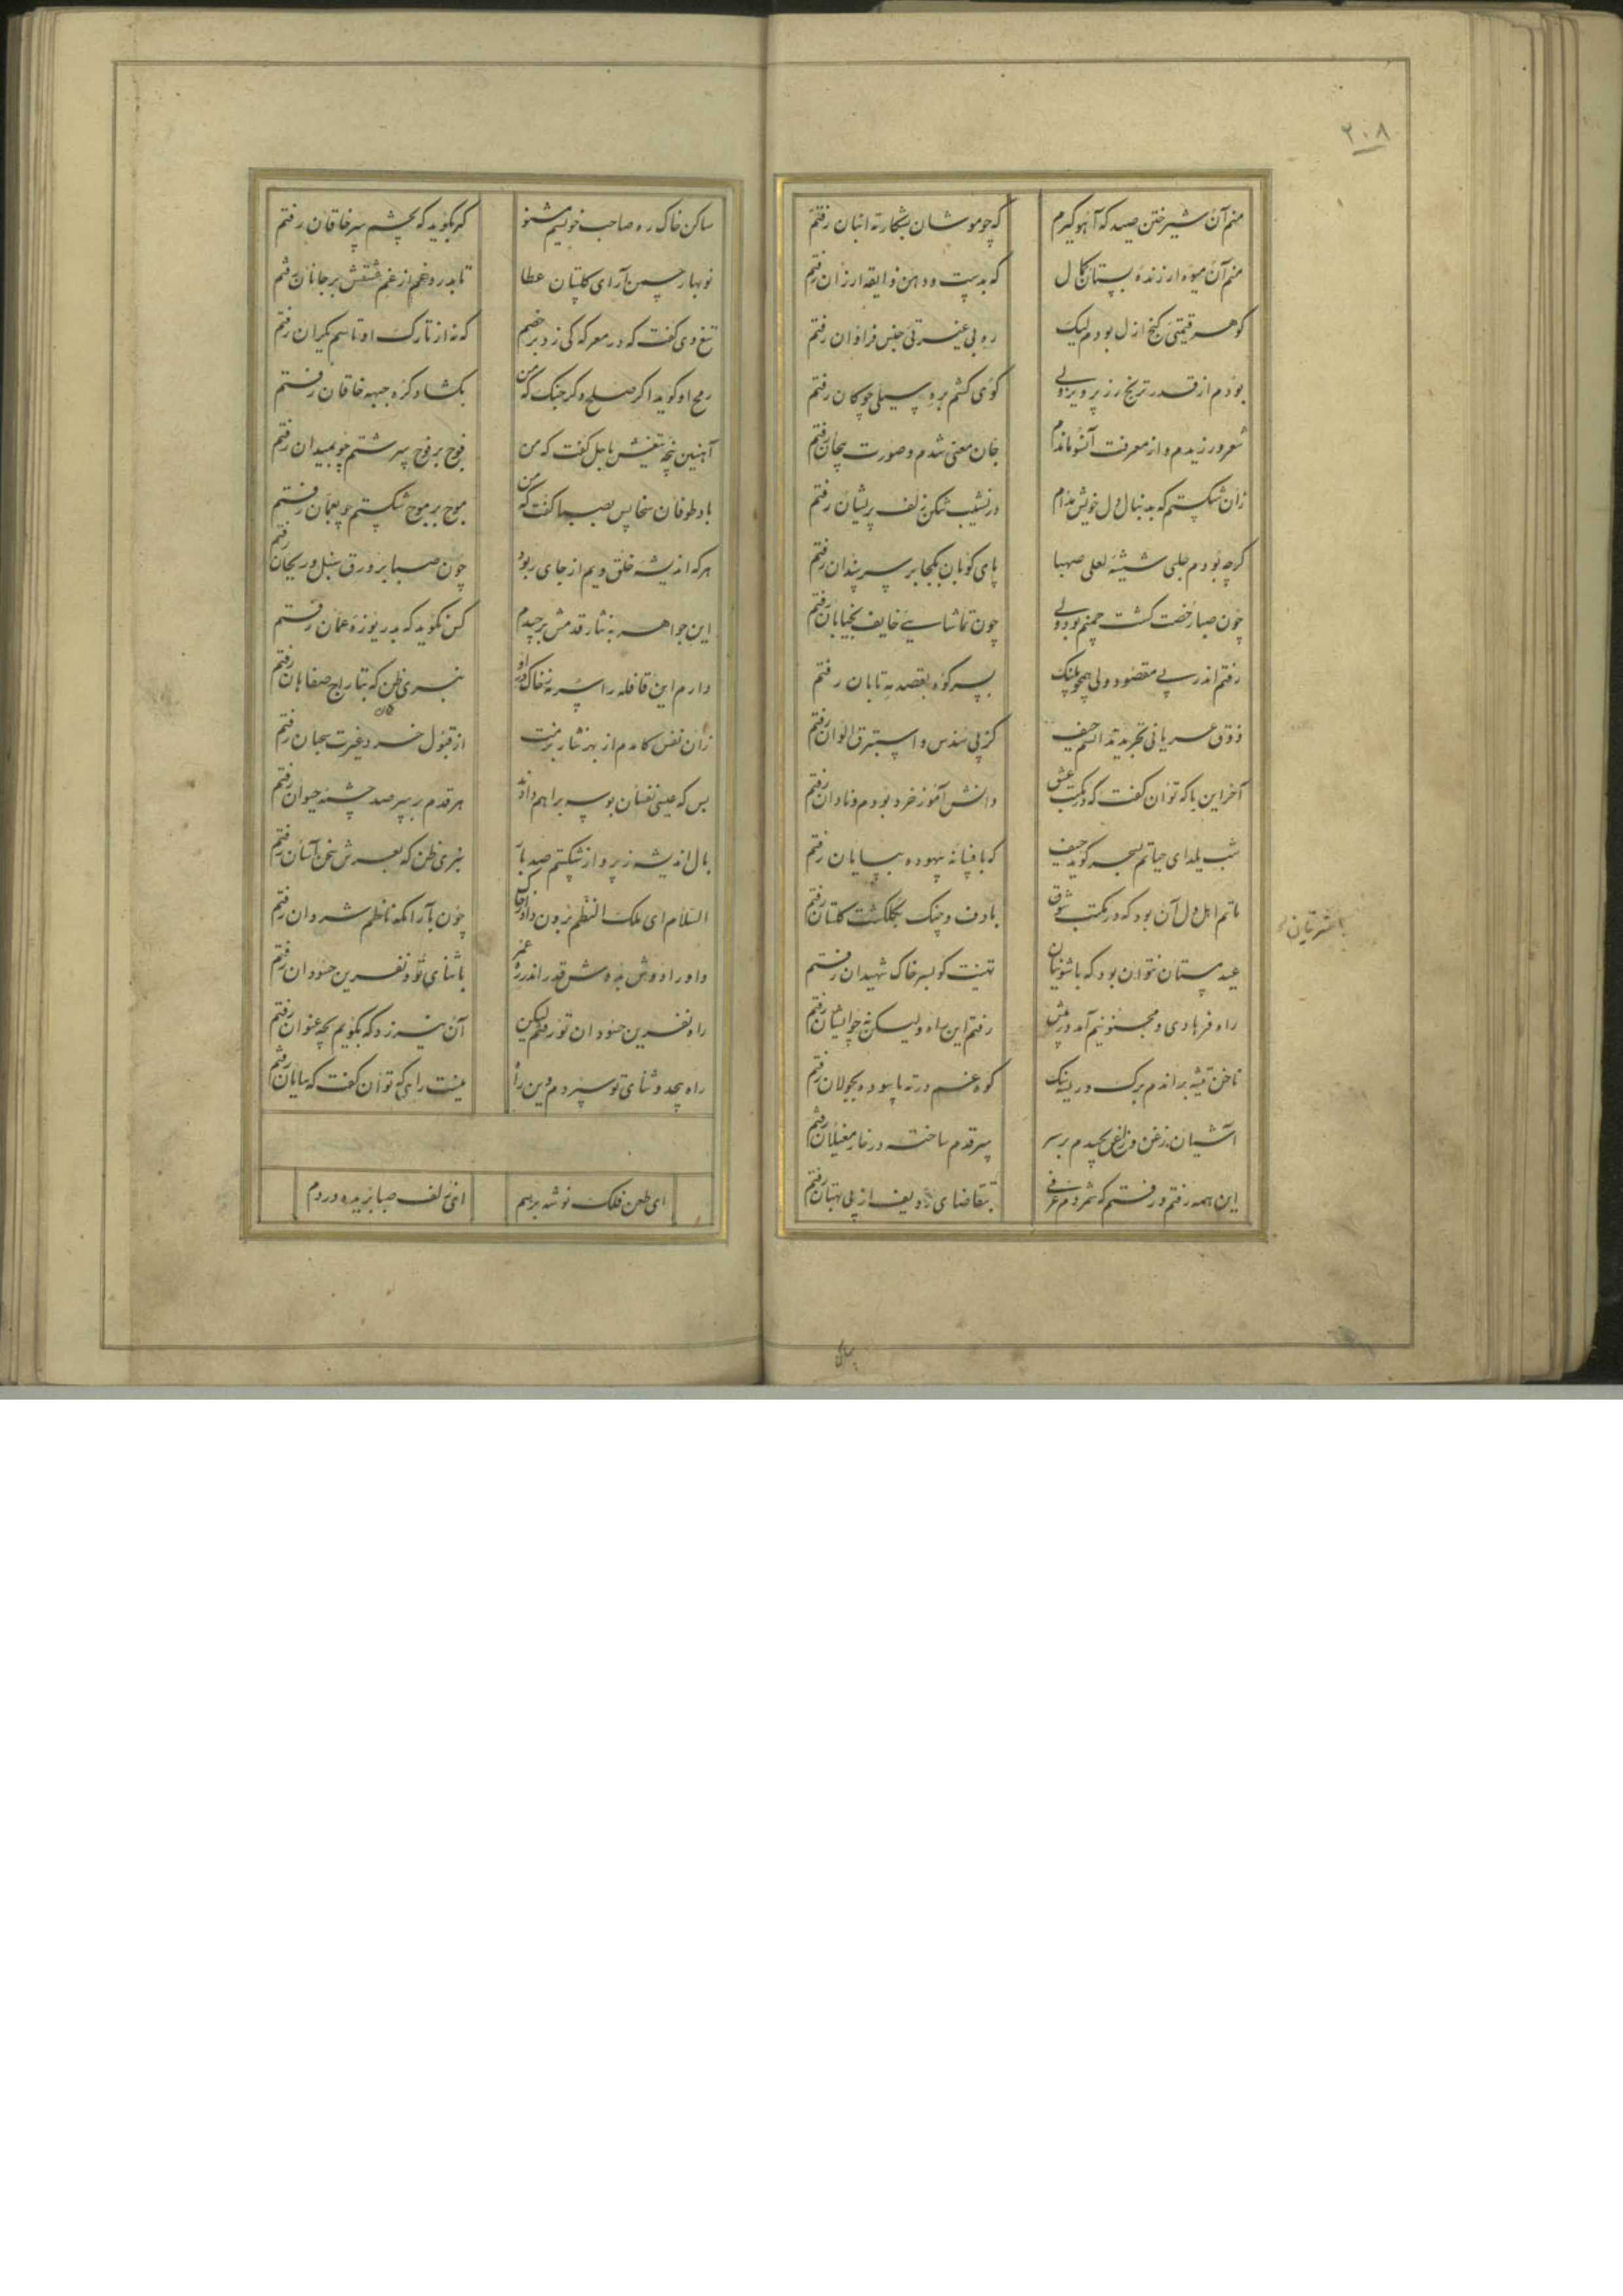 ۲۰۸
منم آن شیر ختن صید که آهو گیرم
که چو موشان بشکار ته انبان رفتم
منم آن میوه ارزنده بستان کمال
که بدست و دهن و ذایقه ارزان رفتم
گوهر قیمتی گنج ازل بودم لیک
ره بی عزتی جنس فراوان رفتم
بودم از قدر ترنج زر پرویز ولی
گوی گشتم بره سیلی چوگان رفتم
شعر ورزیدم و از معرفت آنسو ماندم
جان معنی شدم و صورت بیجان رفتم
زان شکستم که بدنبال دل خویش مدام
در نشیب شکن زلف پریشان رفتم
گرچه بودم حلبی شیشه لعلی صهبا
پای کوبان بر سر سندان رفتم
چون صبا رخصت گشت چمنم بود ولی
چون تماشایی خایف بخیابان رفتم
رفتم اندر پی مقصود ولی همچو پلنگ
بسر کوه بقصد مه تابان رفتم
ذوق عریانی تجرید ندانستم حیف
کز پی سندس و استبرق الوان رفتم
آخر این با که توان گفت که در مکتب عشق
دانش آموز خرد بودم و نادان رفتم
شب یلدای حیاتم بسحر گوید حیف
که بافسانه بیهوده بپایان رفتم
ماتم اهل دل آن بود که در مکتب شوق
با دف و چنگ بگلگشت گلستان رفتم
عید مستان نتوان بود که با شونیان
تهنیت گو بسر خاک شهیدان رفتم
راه فرهادی و مجنونیم آمد در پیش
رفتم این راه ولیکن نه چو ایشان رفتم
ناخن تیشه براندم برگ و ریشه لیک
کوه غم در ته پا سوده بجولان رفتم
آشیان زغن و زاغ بچیدم بر سر
سر قدم ساخته در خار مغیلان رفتم
این همه رفتم و رفتم که شمردم عرفی
بتقاضای ردیف از پی بهتان رفتم
ساکن خاک ره صاحب خویشم مشنو
گر بگوید که بچشم سر خاقان رفتم
نوبهار چمن آرای گلستان عطا
تا بدر از غم عشقش بر جانان رفتم
تیغ وی گفت که در معرکه کی زد بر خصم
که نه از تارک او تا سم یکران رفتم
رمح او گوید اگر صلح و گر جنگ که من
بگشاد گره جبهه خاقان رفتم
آهنین پنجه تیغش باجل گفت که من
فوج بر فوج شکستم چو بمیدان رفتم
باد طوفان سخایش بصبا گفت که من
موج بر موج شکستم چو بعمان رفتم
هر که اندیشه خلق ویم از جای ربود
چون صبا بر ورق سنبل و ریحان رفتم
این جواهر به نثار قدمش برچیدم
کس نگوید که بدریوزه عمان رفتم
دارم این قافله را سرمه ز خاک در او
نبری ظن که بتاراج صفاهان رفتم
زان نفس کامدم از بهر نثار بر منت
از قبول خرد و غیرت سحبان رفتم
بس که عیسی نفسان بوسه براهم دادند
هر قدم بر سر صد چشمه حیوان رفتم
بال اندیشه ز پرواز شکستم صد بار
نبری ظن که بعرش سخن آسان رفتم
السلام ای ملک النظم برون
چون بآرامگه ناظم شروان رفتم
با ثنای تو و نفرین حسودان رفتم
راه نفرین حسودان تو رفتم لیکن
آن نیرزد که بگویم بچه عنوان رفتم
راه بیحد و ثنای تو سپردم وین راه
نیست راهی که توان گفت بپایان رفتم
ای طعن فلک نوشه بر اسم
ای زلف صبا بریده در دم